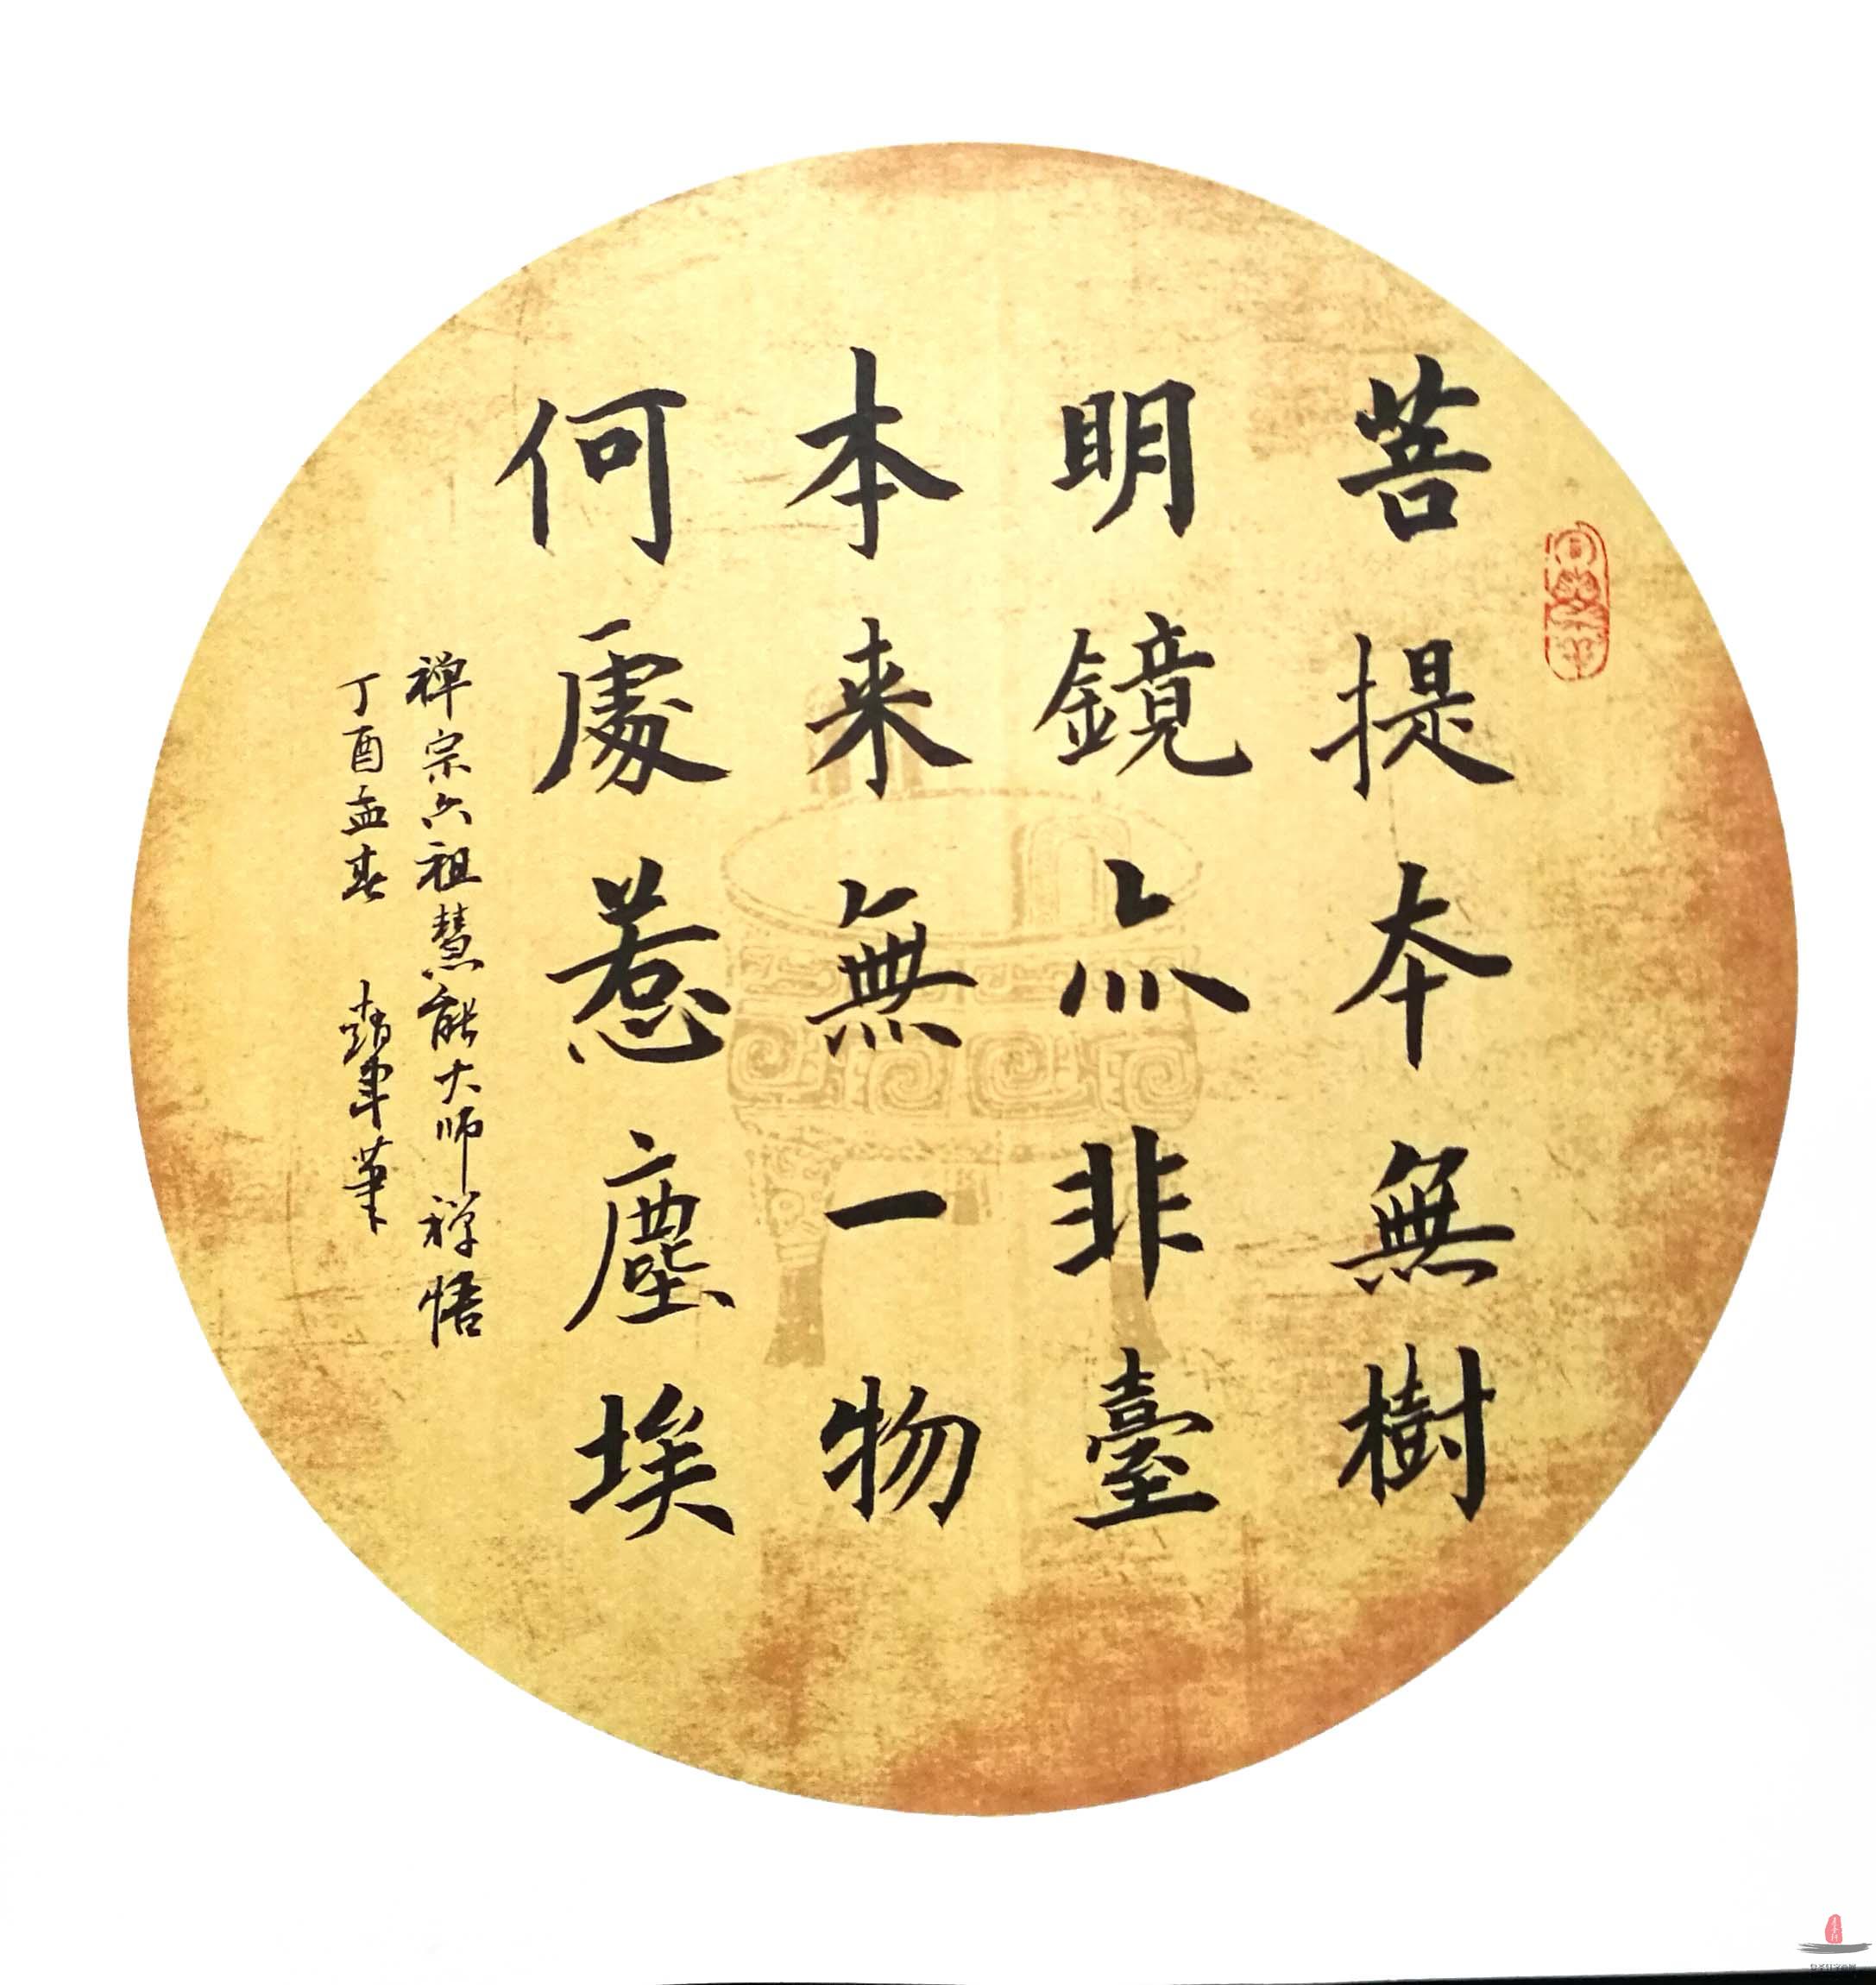 菩提本無樹
明鏡亦非臺
本来無一物
何處惹塵埃
禅宗六祖慧能大师禅悟
丁酉孟春 趙軍筆